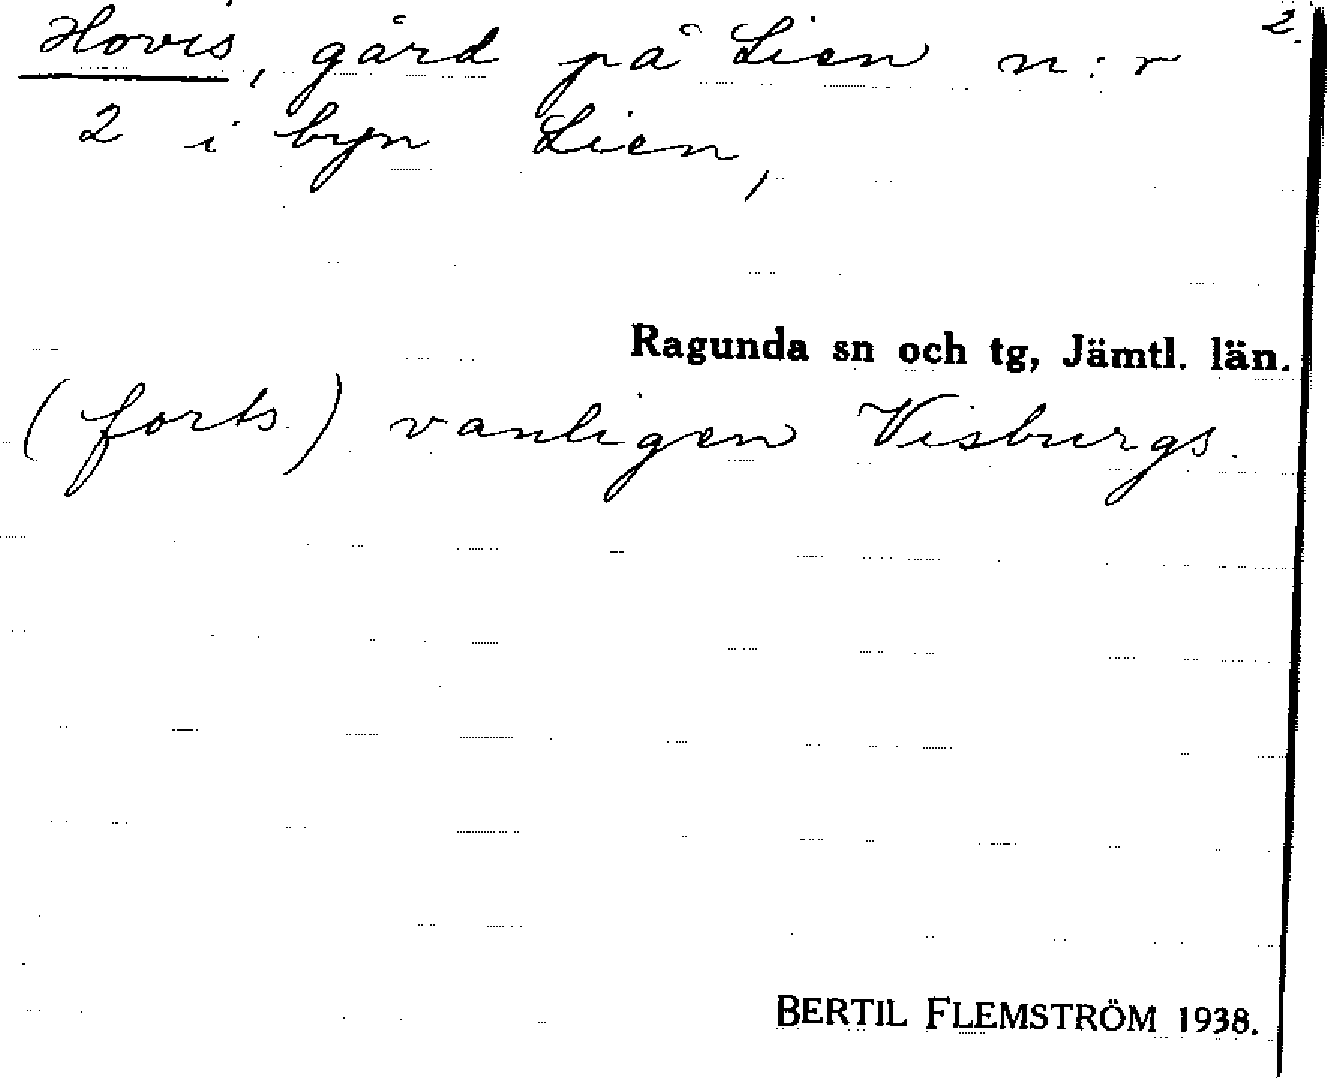 2.
Hovis, gård på Lien n:r
2 i byn Lien,
Ragunda sn och tg, Jämtl. län.
(forts) vanligen Visburgs.
BERTIL FLEMSTRÖM 1938.